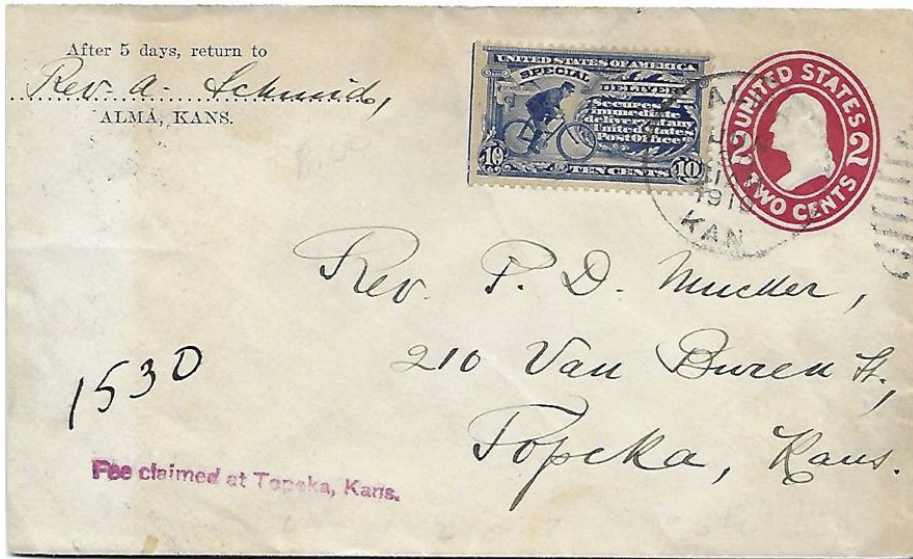 After 5 days, return to
Rev. A. Schmid,
ALMA, KANS.
UNITED STATES OF AMERICA
SPECIAL DELIVERY
Secures
immediate
delivery at any
United States
Post Office
10 TEN CENTS 10
UNITED STATES
2 2
TWO CENTS
KAN
Rev. P. D. Mueller,
210 Van Buren St.,
Topeka, Kans.
1530
Fee claimed at Topeka, Kans.